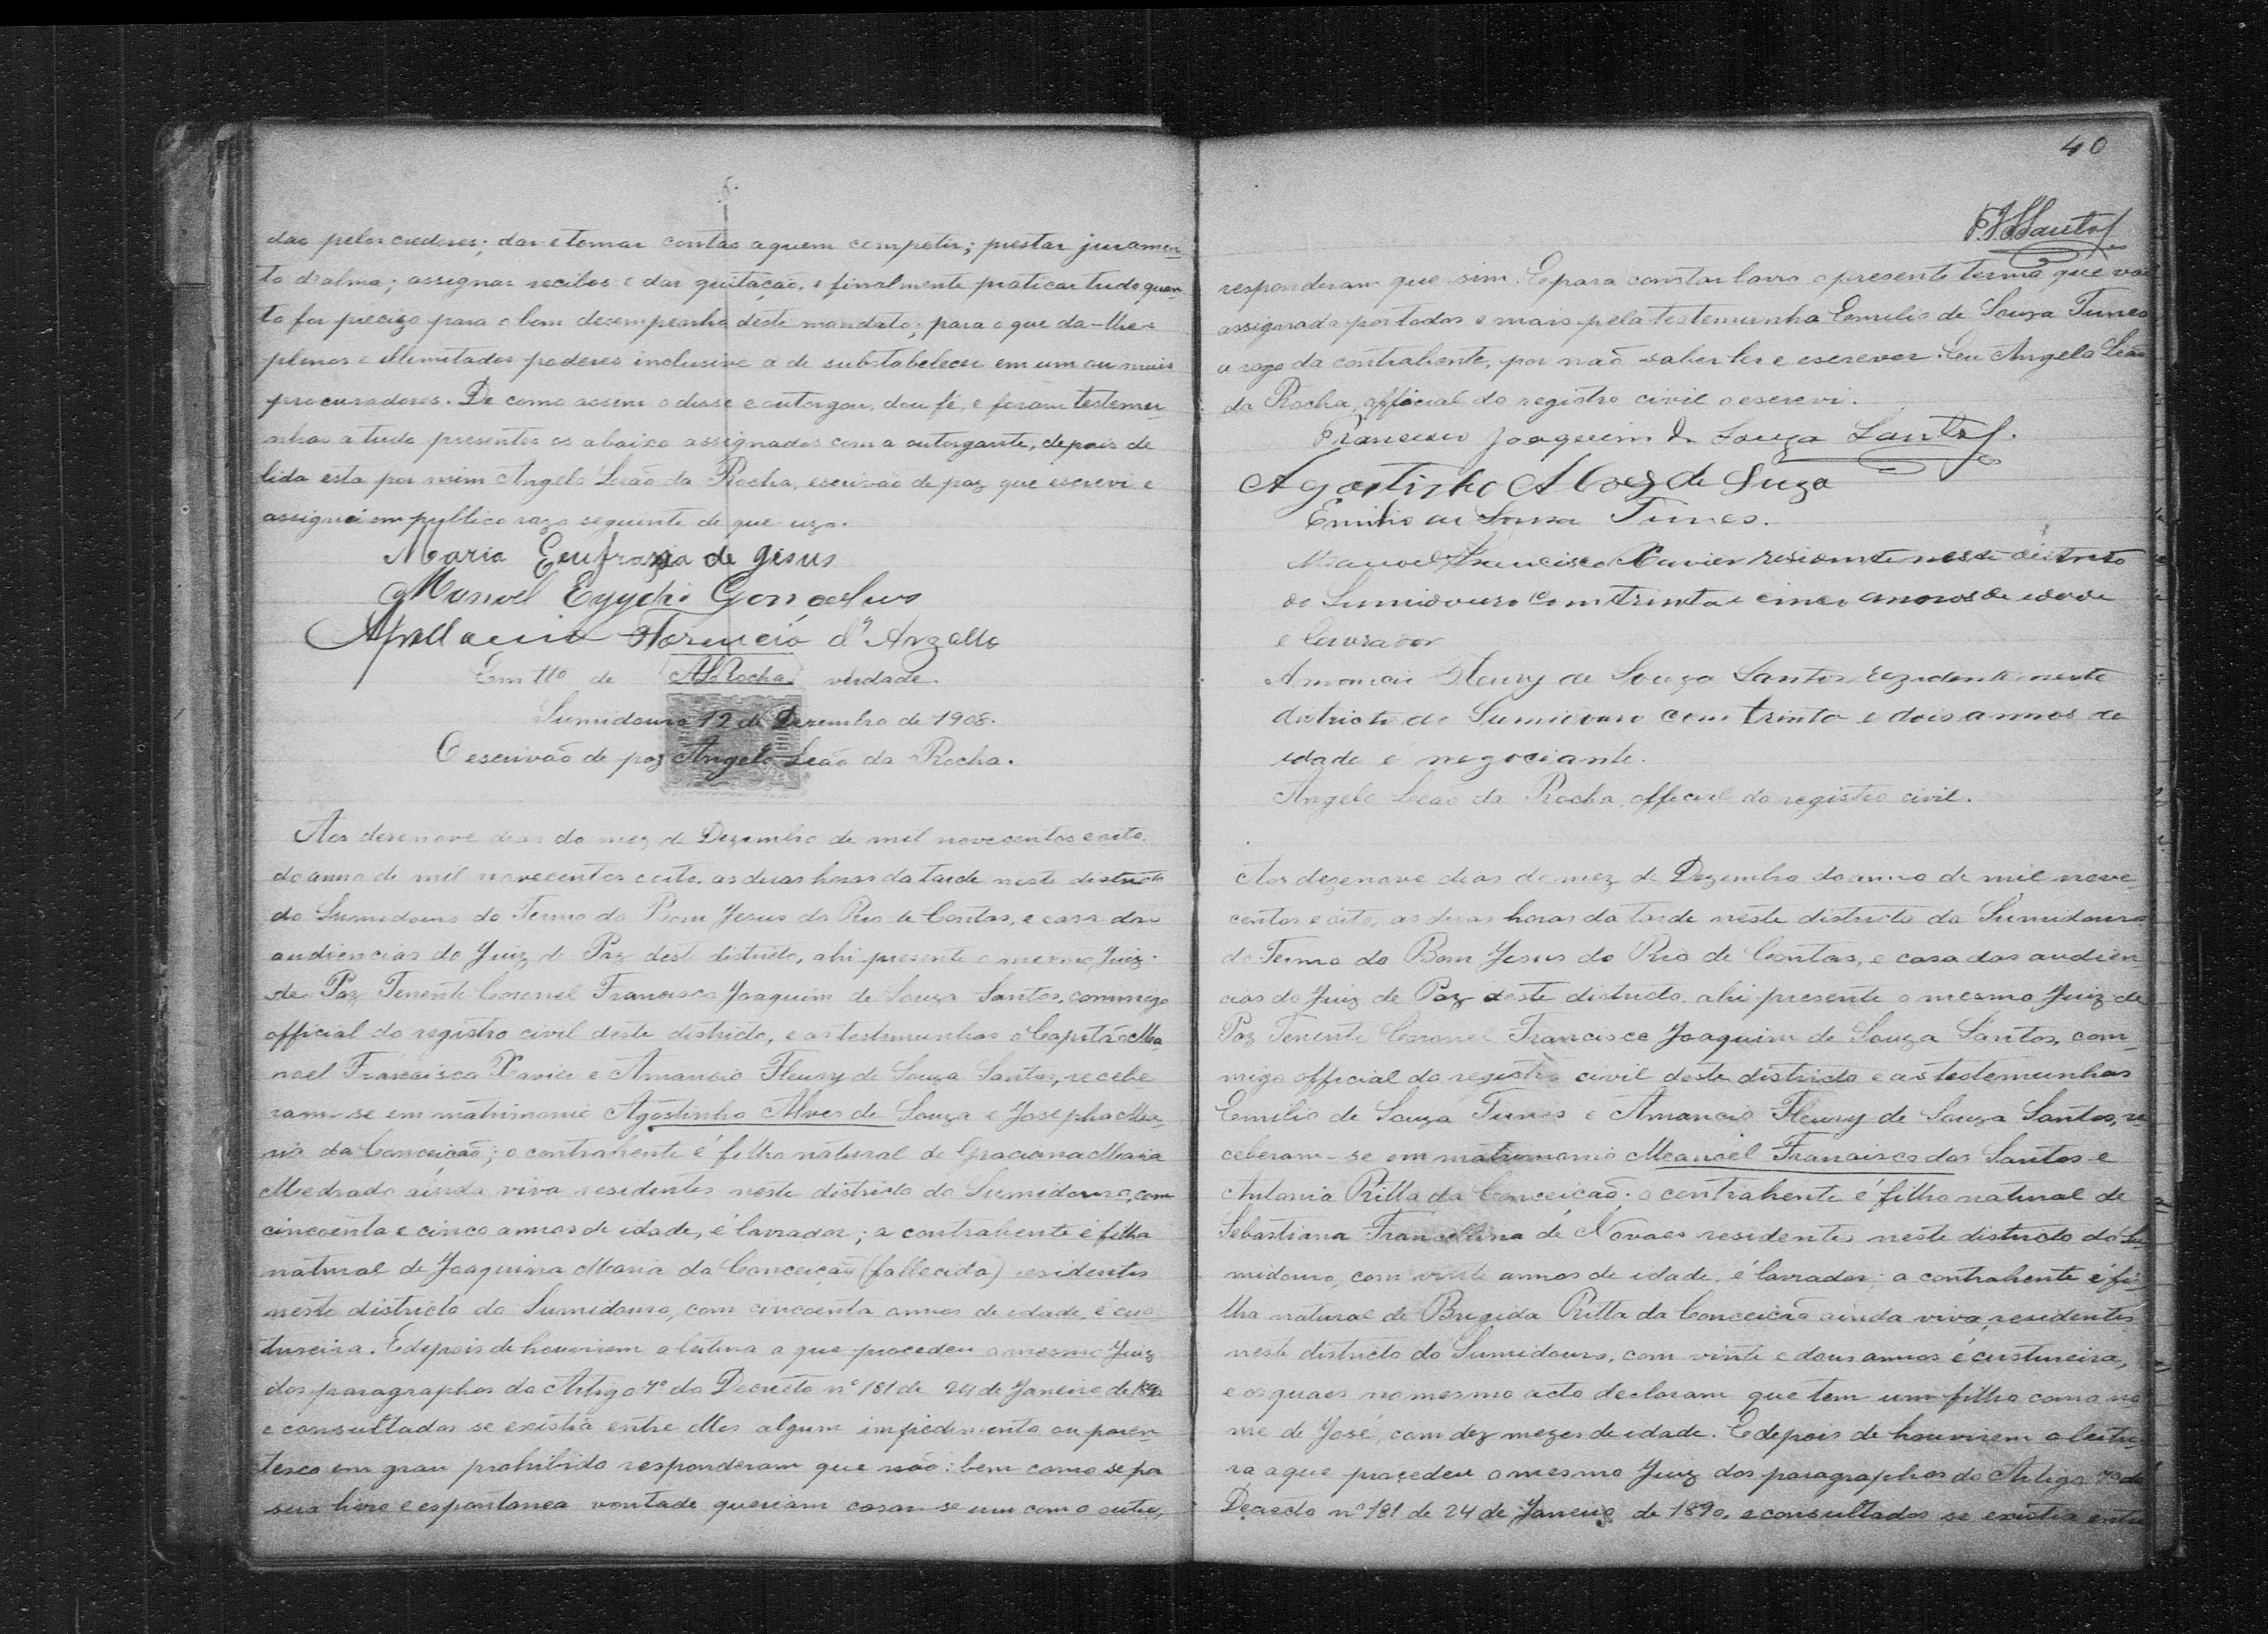 das pelos credores; dar e tomar contas a quem competir; prestar juramen-
to d'alma; assignar recibos e dar quitação, e finalmente praticar tudo quan-
to for precizo para o bom desempenho deste mandato; para o que da-lhes
plenos e illimitados poderes inclusive a de substabelecer em um ou mais
procuradores. De como assim o disse e outorgou, dou fé, e foram testemu-
nhas a tudo presentes os abaixo assignados com a outorgante, depois de
lida esta por mim Angelo Leão da Rocha, escrivão de paz que escrevi e
assignei em publico razo seguinte de que uzo.
Maria Eufrazia de Jesus
Manoel Egydio Gonçalves
d'
Em tto de ALRocha verdade.
Sumidouro 12 de Dezembro de 1908.
O escrivão de paz Angelo Leão da Rocha.
Aos desenove dias do mez de Dezembro de mil novecentos e oito.
do anno de mil novecentos e oito. as duas horas da tarde neste districto
do Sumidouro do Termo do Bom Jesus do Rio de Contas, e casa das
audiencias do Juiz de Paz deste districto, ahi presente o mesmo Juiz
de Paz Tenente Coronel Francisco Joaquim de Souza Santos, commigo
official do registro civil deste districto, e as testemunhas o Capitão Ma-
noel Francisco Xavier e Amancio Fleury de Souza Santos, recebe
ram-se em matrimonio Agostinho Alves de Souza e Josepha Ma-
ria da Conceição; o contrahente é filho natural de Graciana Maria
Medrado ainda viva residentes neste districto do Sumidouro, com
cincoenta e cinco annos de idade, é lavrador; a contrahente é filha
natural de Joaquina Maria da Conceição (fallecida) residentes
neste districto do Sumidouro, com cincoenta annos de idade, é cus-
tureira. E depois de houvirem a leitura a que procedeu o mesmo Juiz
dos paragraphos do Artigo 7º do Decreto nº 181 de 24 de Janeiro de 1890
e consultados se existia entre elles algum impedimento ou paren-
tesco em grau prohibido responderam que não: bem como se por
sua livre e espontanea vontade queriam casar-se um com o outro,
40
FJSSantos
responderam que sim. E para constar lavro o presente termo que vai
assignado por todos e mais pela testemunha Emilio de Souza Tunes
a rogo da contrahente, por não saber ler e escrever. Eu Angelo Leão
da Rocha, official do registro civil o escrevi.
Francisco Joaquim de Souza Santos.
Agostinho Alves de Suza
Emilio de Souza Tunes.
Manoel Francisco Xavier residente neste districto
do Sumidouro com trinta e cinco annos de idade
e lavrador
Amancio Fleury de Souza Santos rezidente neste
districto do Sumidouro com trinta e dois annos de
idade e negociante.
Angelo Leão da Rocha, official do registro civil.
Aos dezenove dias do mez de Dezembro do anno de mil nove-
centos e oito, as duas horas da tarde neste districto do Sumidouro
do Termo do Bom Jesus do Rio de Contas, e casa das audien-
cias do Juiz de Paz deste districto. ahi presente o mesmo Juiz de
Paz Tenente Coronel Francisco Joaquim de Souza Santos, com-
migo official do registro civil deste districto e as testemunhas
Emilio de Souza Tunes e Amancio Fleury de Souza Santos, re
ceberam-se em matrimonio Manoel Francisco dos Santos e
Antonia Ritta da Conceição. o contrahente é filho natural de
Sebastiana Francellina de Novaes residentes neste districto do Su
midouro, com vinte annos de idade, é lavrador; a contrahente é fi-
lha natural de Brigida Ritta da Conceição ainda viva, residentes
neste districto do Sumidouro, com vinte e dous annos é custureira,
e os quaes no mesmo acto declaram que tem um filho com o no
me de José, com dez mezes de idade. E depois de houvirem a leitu-
ra a que procedeu o mesmo Juiz dos paragraphos do Artigo 7º do
Decreto nº 181 de 24 de Janeiro de 1890, e consultados se existia entre